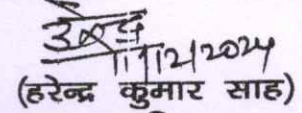 11/12/2024
(हरेन्द्र कुमार साह)